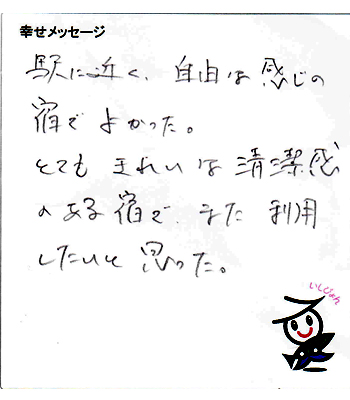 幸せメッセージ
駅に近く、自由な感じの
宿でよかった。
とてもきれいな清潔感
のある宿で、また利用
したいと思った。
いしじょん